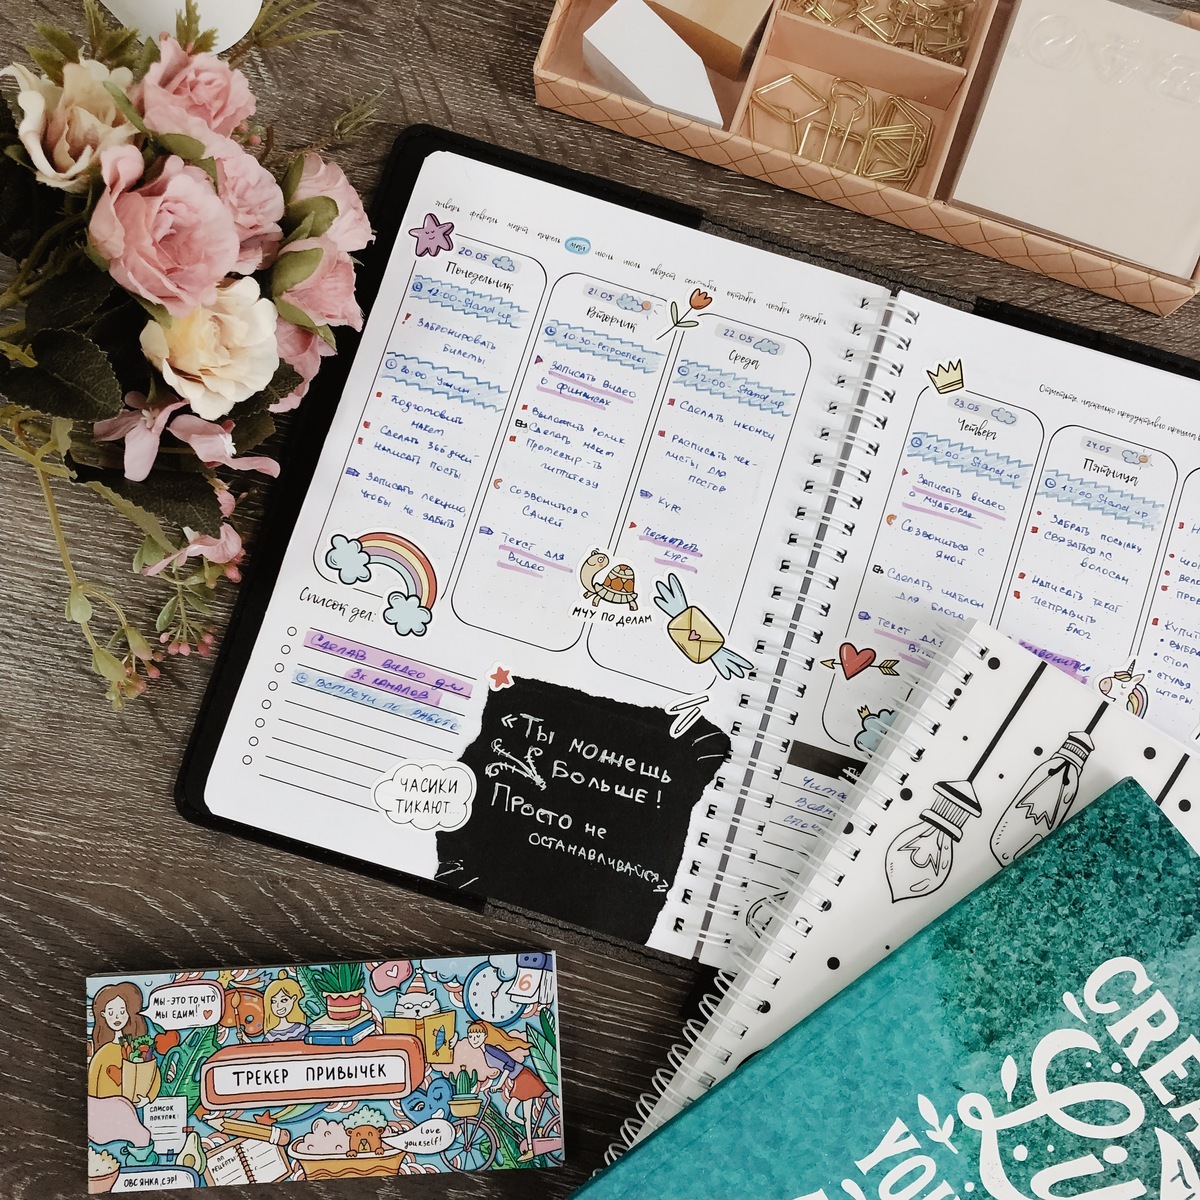 январь февраль март апрель май июнь июль август сентябрь октябрь ноябрь декабрь
20.05
Понедельник
12:00-Stand up
! Забронировать
билеты
20:00
Подготовить
макет
Сделать
Написать посты
Записать лекцию,
чтобы не забыть
21.05
Вторник
10:30-Ретроспект.
Записать видео
о финансах
Выложить ролик
Сделать макет
Протестир-ть
гипотезу
Созвониться с
Сашей
Текст для
видео
22.05
Среда
12:00-Stand up
Сделать иконки
Расписать чек-
листы для
постов
Курс
Посмотреть
курс
МЧУ ПО ДЕЛАМ
Список дел:
Сделать видео для
3х каналов
Встречи по работе
ЧАСИКИ
ТИКАЮТ...
«Ты можешь
больше!
Просто не
останавливайся»
23.05
Четверг
12:00-Stand up
Записать видео
о мудборде
Созвониться с
Яной
Сделать шаблон
для блога
Текст для
24.05
Пятница
12:00 Stand up
Забрать посылку
Связаться по
волосам
Написать текст
Исправить
блог
Купить
стол
стулья
шторы
МЫ-ЭТО ТО ЧТО
МЫ ЕДИМ!
6
ТРЕКЕР ПРИВЫЧЕК
СПИСОК
ПОКУПОК:
ПП
РЕЦЕПТЫ
Love
yourself!
ОВСЯНКА, СЭР!